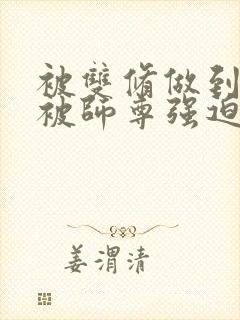 被雙脩做到
被師尊强迫
姜渭清